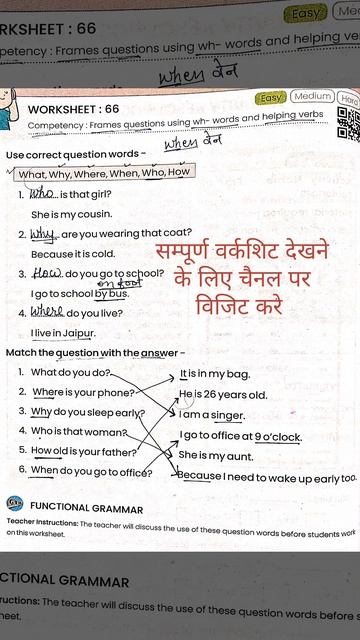 RKSHEET : 66
Easy
Me
petency : Frames questions using wh- words and helping ve
when वेन
WORKSHEET : 66
Easy Medium Hard
Competency : Frames questions using wh- words and helping verbs
when वेन
Use correct question words –
What, Why, Where, When, Who, How
1. Who is that girl?
She is my cousin.
2. Why are you wearing that coat?
Because it is cold.
3. How do you go to school?
on foot
I go to school by bus.
4. Where do you live?
I live in Jaipur.
सम्पूर्ण वर्कशिट देखने
के लिए चैनल पर
विजिट करे
Match the question with the answer –
1. What do you do? It is in my bag.
2. Where is your phone? He is 26 years old.
3. Why do you sleep early? I am a singer.
4. Who is that woman? I go to office at 9 o'clock.
5. How old is your father? She is my aunt.
6. When do you go to office? Because I need to wake up early too.
FUNCTIONAL GRAMMAR
Teacher Instructions: The teacher will discuss the use of these question words before students work
on this worksheet.
CTIONAL GRAMMAR
ructions: The teacher will discuss the use of these question words before s
heet.